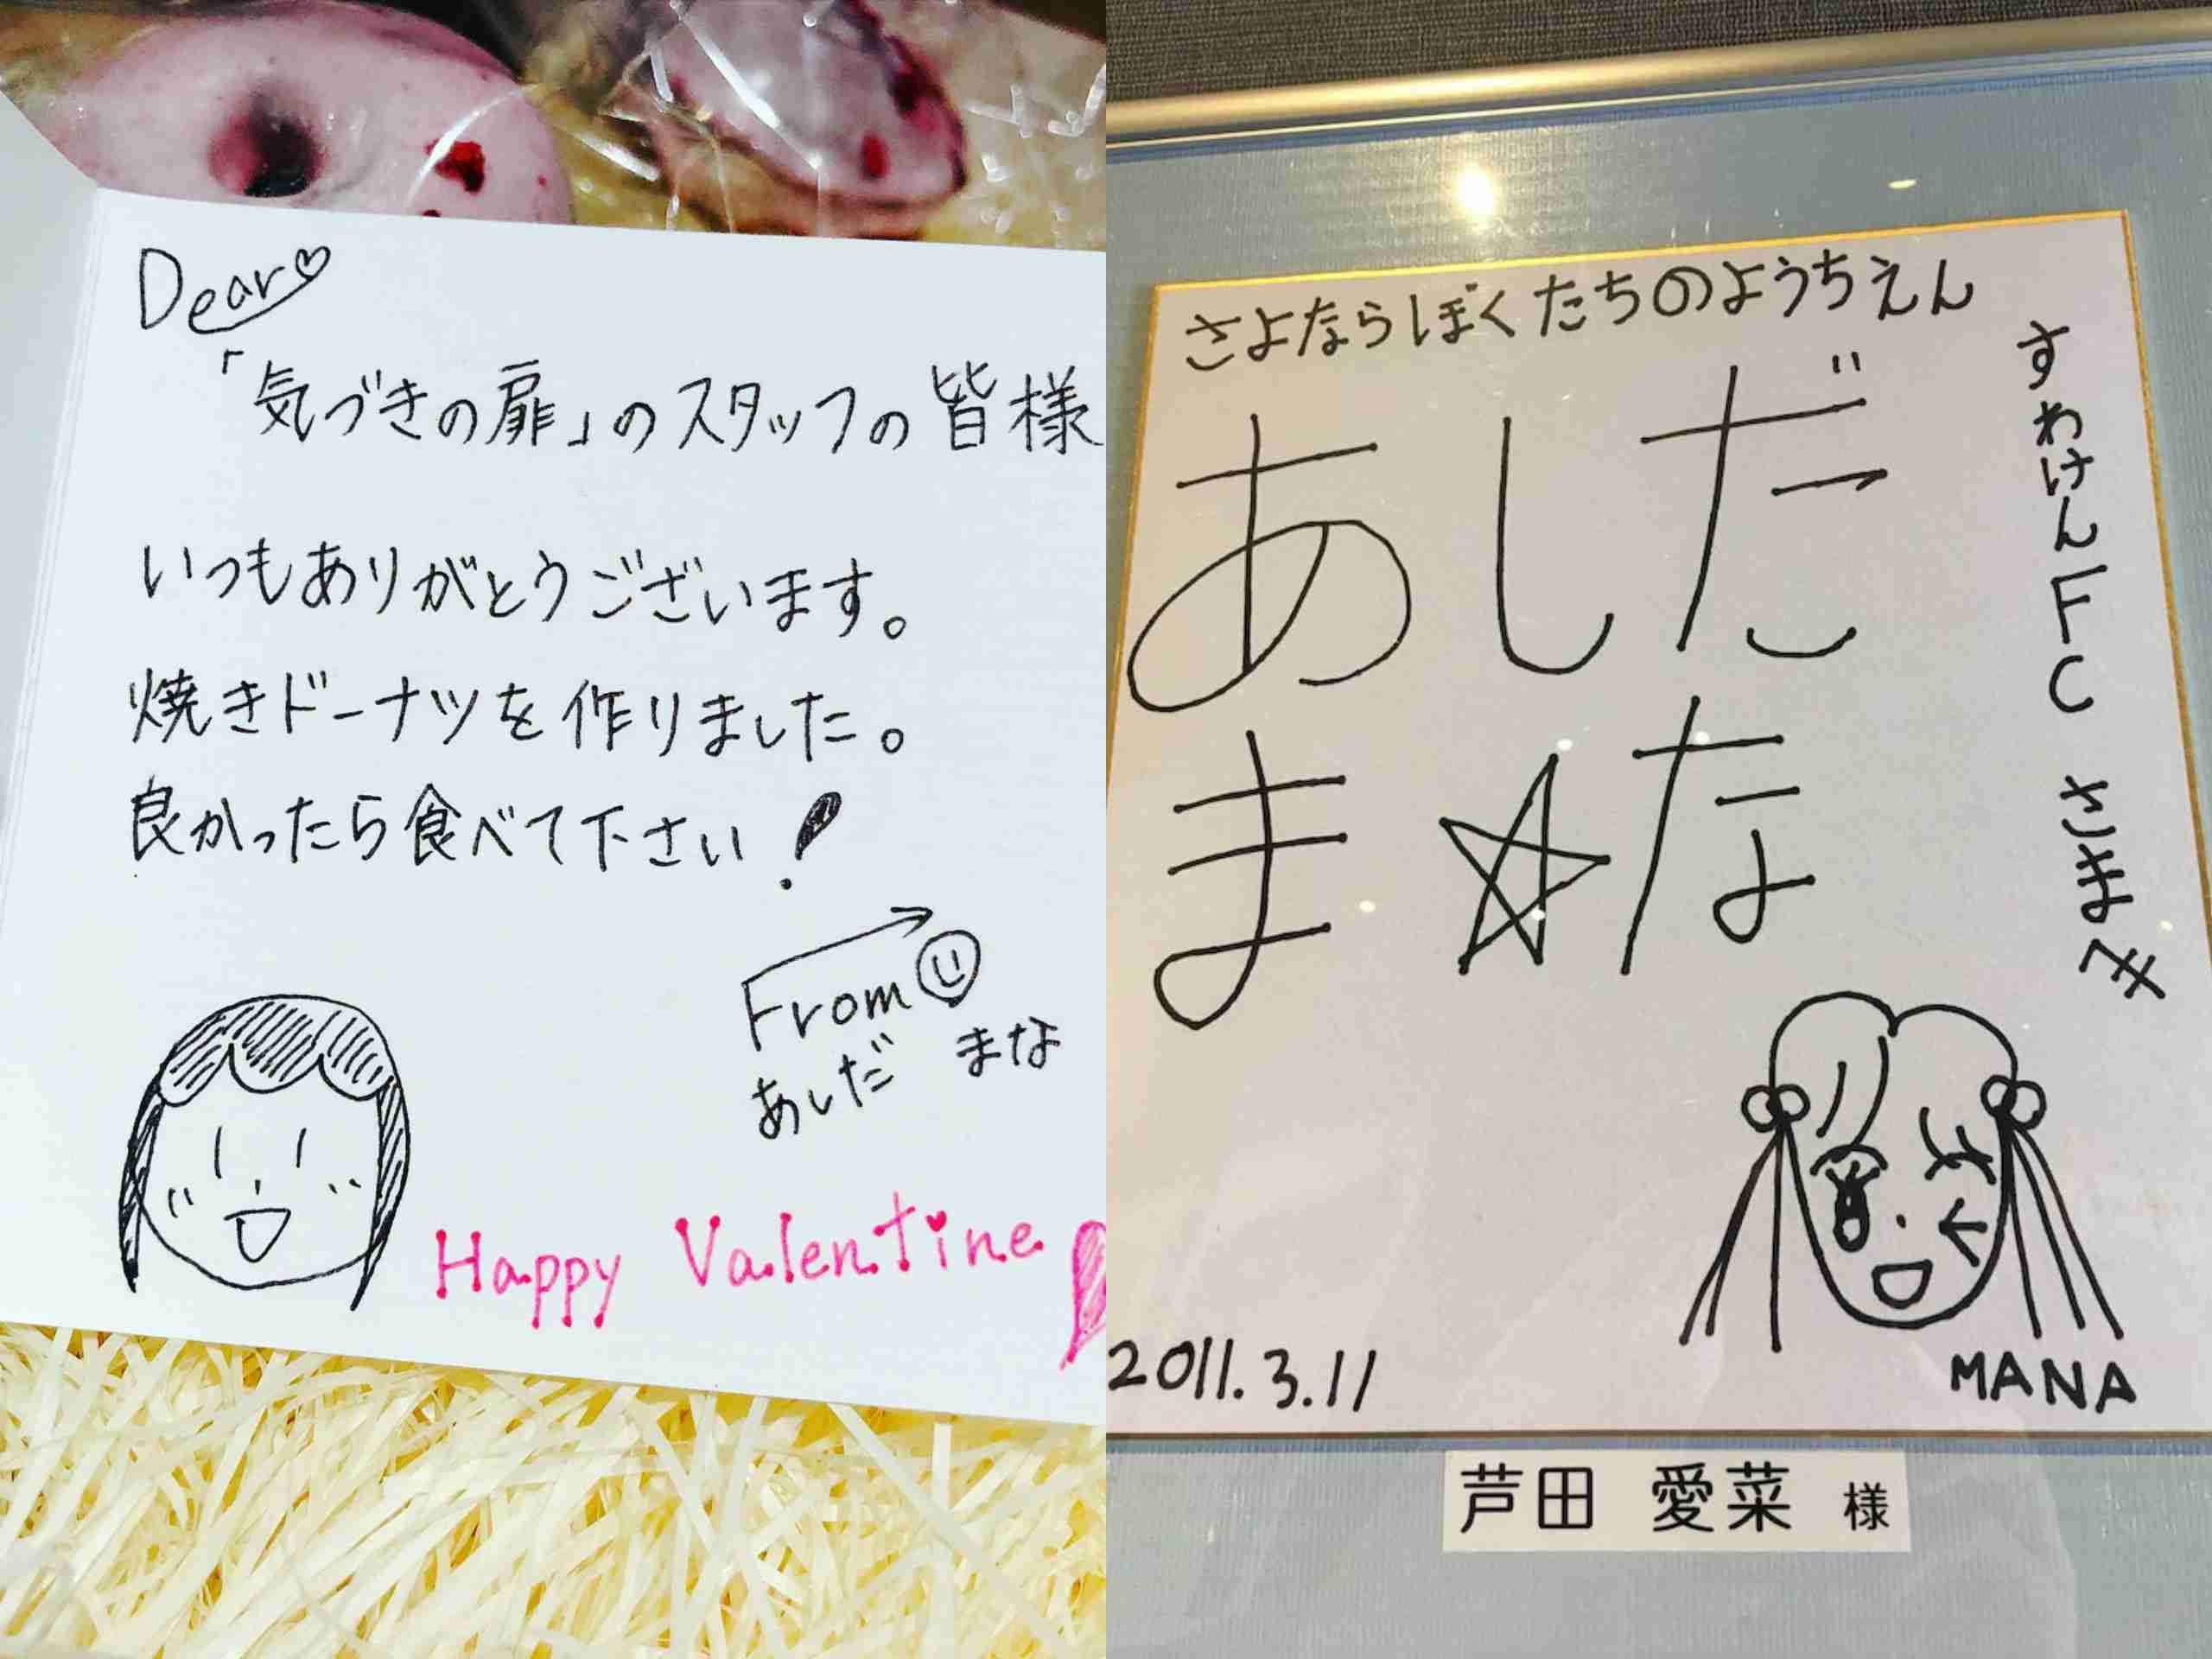 Dear♡
「気づきの扉」のスタッフの皆様
いつもありがとうございます。
焼きドーナツを作りました。
良かったら食べて下さい!
From
あしだ まな
Happy Valentine
さよならぼくたちのようちえん
すわけんFC さまへ
あしだ
ま☆な
MANA
2011.3.11
芦田 愛菜 様